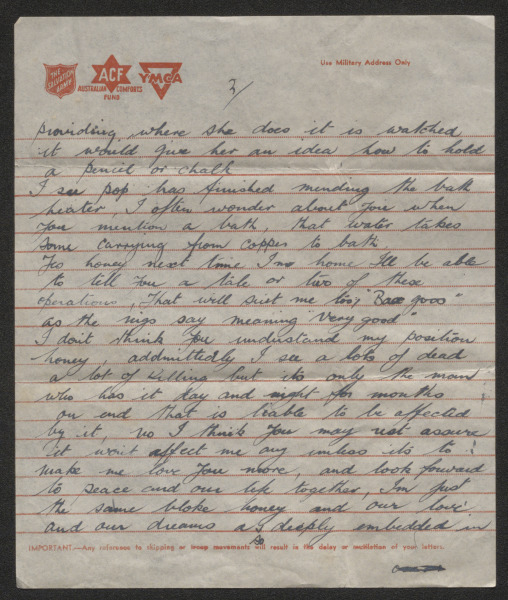 THE SALVATION ARMY
ACF
AUSTRALIAN COMFORTS FUND
YMCA
Use Military Address Only
3/
providing where she does it is watched
it would give her an idea how to hold
a pencil or chalk
I see pop has finished mending the bath
heater, I often wonder about you when
you mention a bath that water takes
some carrying from copper to bath
Yes honey next time I'm home I'll be able
to tell you a tale or two of these
operations, That will suit me too, "
as the nigs say meaning "Very good"
I don't think you understand my position
honey, addmittedly I see a lots of dead
a lot of killing but its only the man
who has it day and night for months
on end that is liable to be affected
by it, no I think you may rest assure
it won't affect me any unless its to
make me love you more, and look forward
to peace and our life together, I'm just
the same bloke honey and our love
and our dreams as deeply embedded in
IMPORTANT.—Any reference to shipping or troop movements will result in the delay or mutilation of your letters.